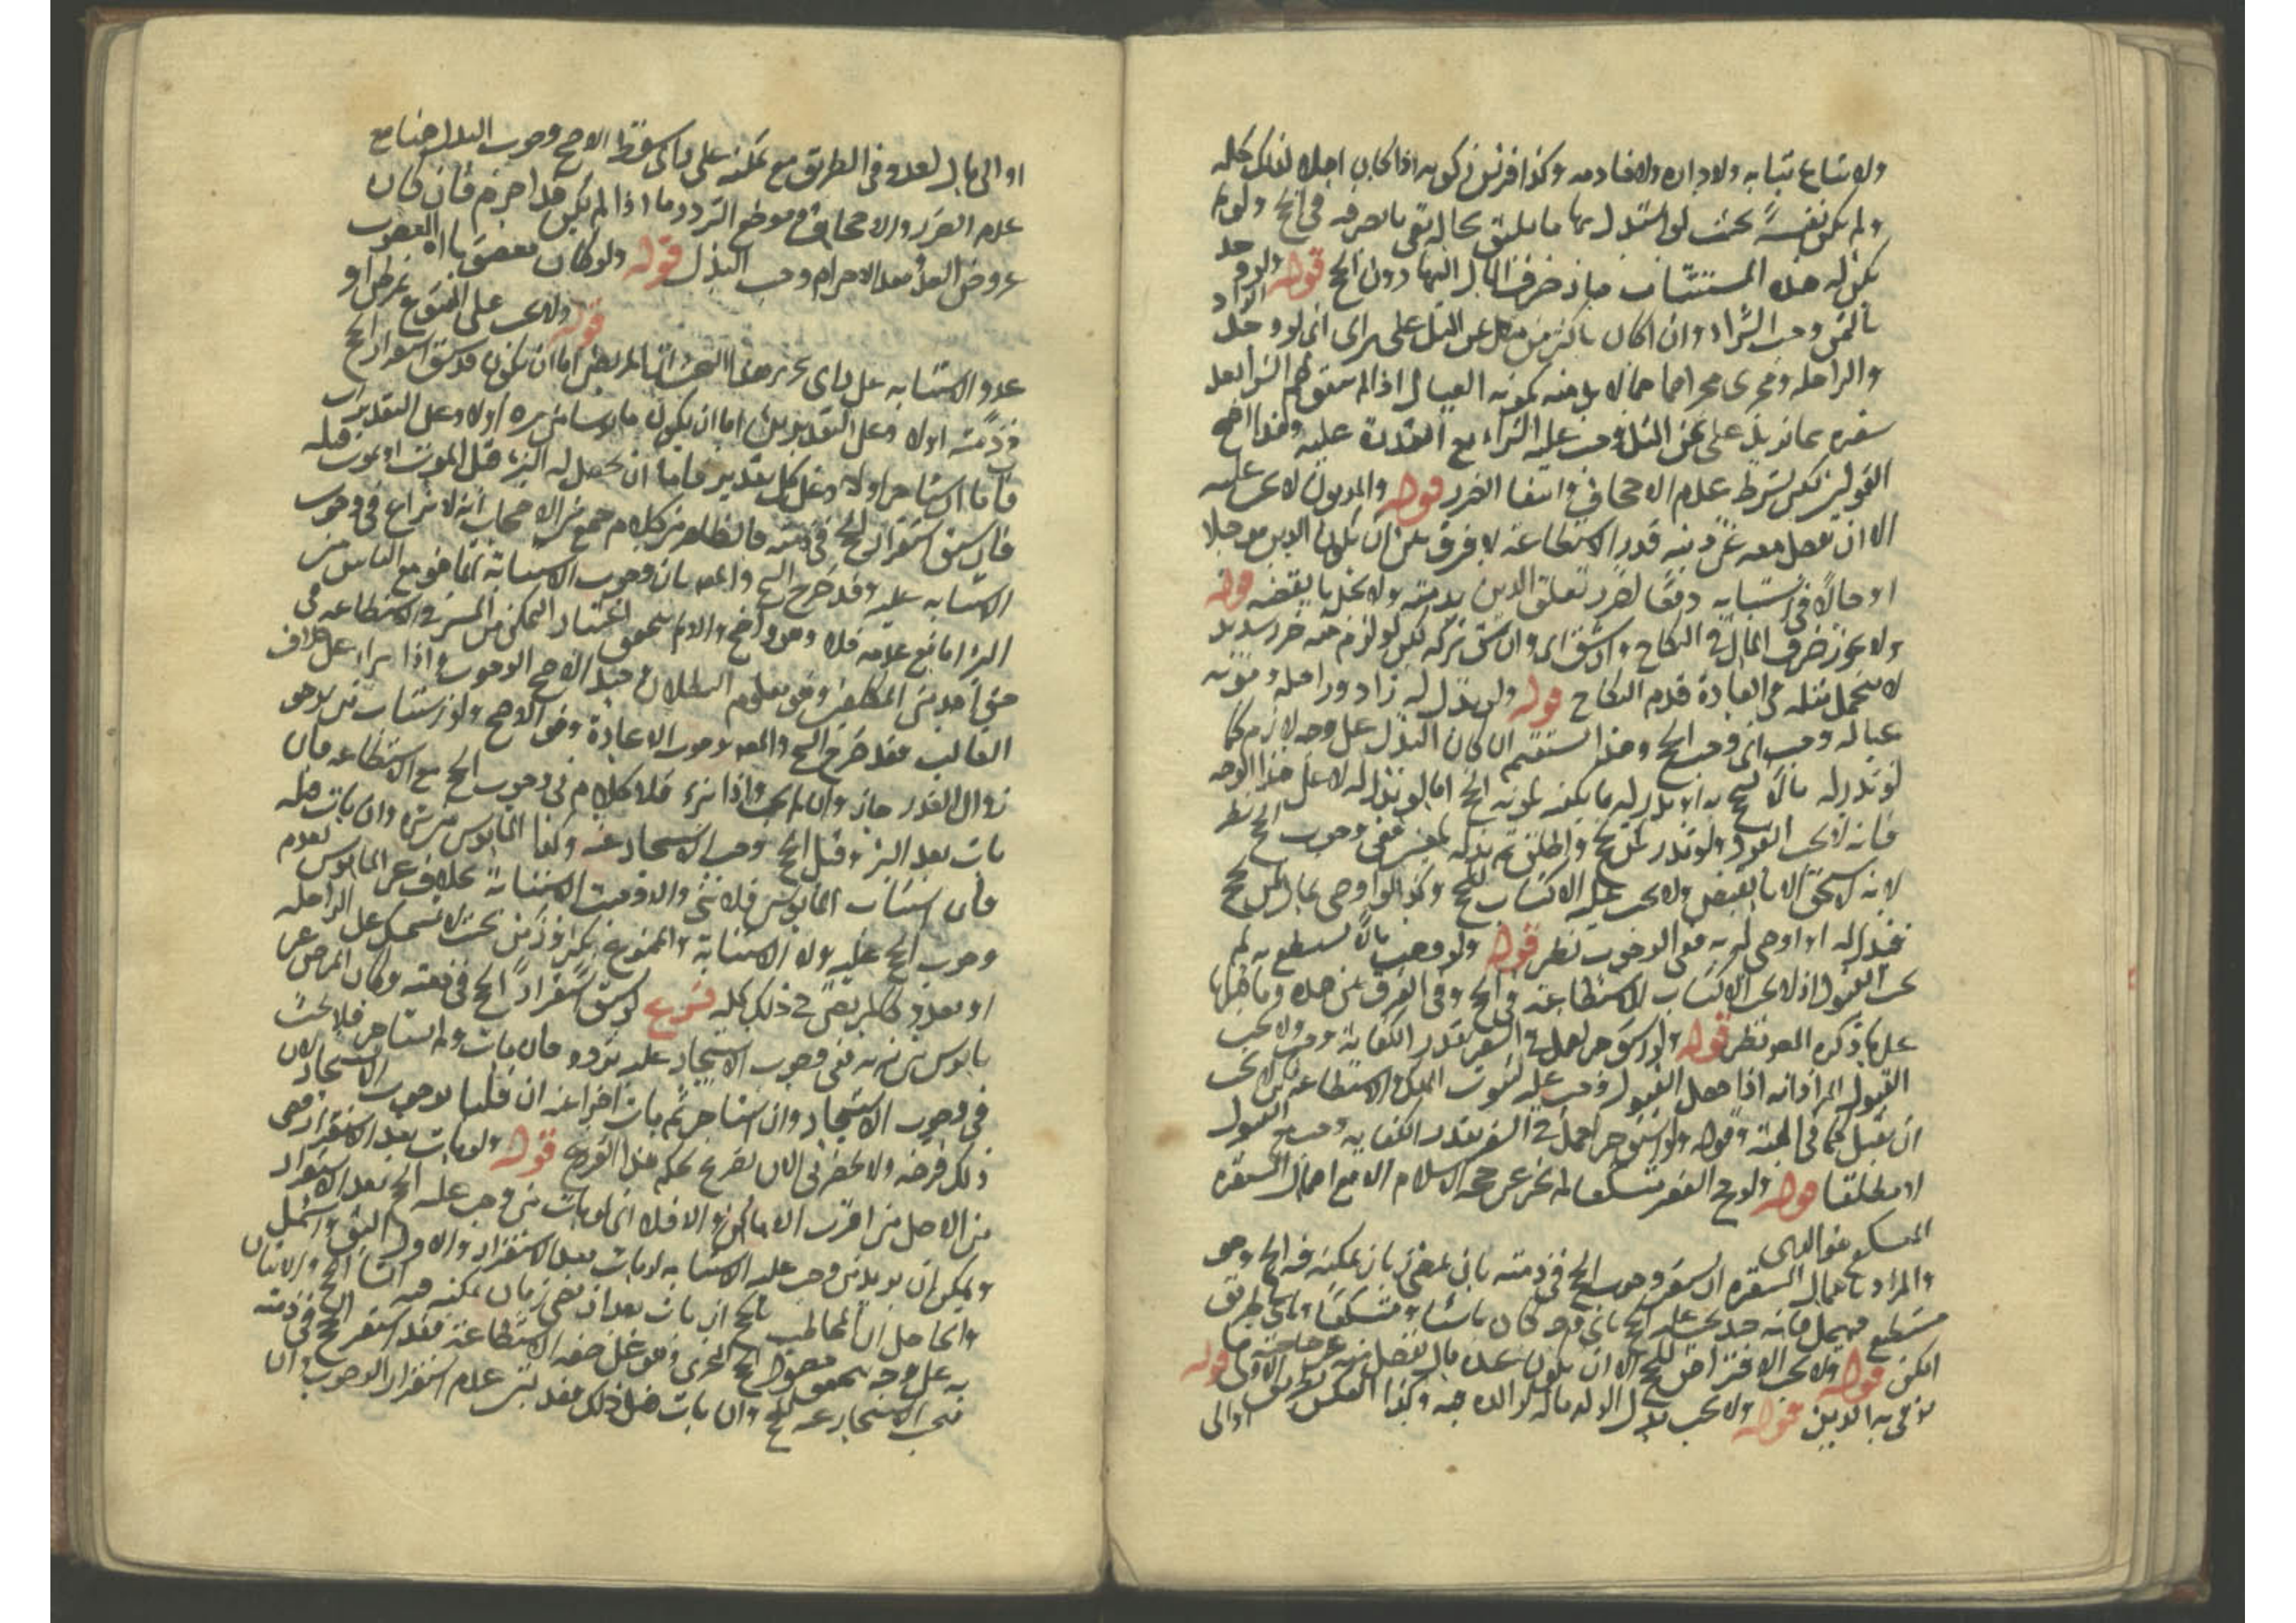 ولا تباع ثيابه ولا داره ولا خادمه وكذا فرس ركوبه اذا كان اهلا لذلك كله
ولم يكن نفيسة بحيث لو استبدل بها ما يليق بحاله بقي ما يصرفه في الحج ولو لم
يكن له هذه المستثنيات جاز صرف المال اليها دون الحج قوله ولو وجد الزاد
بالثمن وجب الشراء وان كان باكثر من ثمن المثل على راي اي لو وجد
والراحلة وجرى مجراهما مما لا بد منه كمونة العيال اذا لم يتفق لهم الشراء بعد
سفره بما يزيد على ثمن المثل وجب عليه الشراء مع القدرة عليه وهذا اصح
القولين لكن بشرط عدم الاجحاف وانتفا الضرر قوله والمديون لا يجب عليه
الا ان يفضل معه عن دينه قدر الاستطاعة لا فرق بين ان يكون الدين مؤجلا
او حالا في استثنائه دفعا لضرر تعلق الدين بذمته ولا يخل ما يقضه قوله
ولا يجوز صرف المال في النكاح وان شق اي وان شق تركه لكن لو لزم منه ضرر شديد
لا يتحمل مثله في العادة قدم النكاح قوله ولو بذل له زاد وراحلة ومونة
عياله وجب اي وجب الحج وهذا يستقيم ان كان البذل على وجه لازم كما
لو نذر له مالا ليحج به او نذر له ما يكفيه لمونة الحج اما لو بذل له لا على هذا الوجه
فانه لا يجب القبول ولو نذر لمن يحج واطلق ثم بذله لمعين ففي وجوب الحج نظر
لانه لا يستحق الا بالقبض ولا يجب عليه الاكتساب للحج وكذا لو اوصى بمال لمن يحج
فبذل له او اوصى له به ففي الوجوب نظر قوله ولو وهب مالا يستطيع به لم
يجب القبول اذ لا يجب الاكتساب للاستطاعة في الحج وفي الفرق بين هذه وما قبلها
على ما ذكره المص نظر قوله ولو استوجر لعمل في السفر بقدر الكفاية وجب ولا يجب
القبول المراد انه اذا حصل القبول وجب عليه لثبوت الملك والاستطاعة لكن لا يجب
ان يقبل كما في الهبة وقوله ولو استوجر لعمل في السفر بقدر الكفاية وجب القبول
او مطلقا قوله ولو حج الفقير متسكعا لم يجز عن حجة الاسلام الا مع اهمال المستقرة
المتسكع هو
والمراد باهمال المستقرة ان يستقر وجوب الحج في ذمته بان يمضي زمان يمكنه فيه الحج وهو
مستطيع فيهمل فانه حينئذ يجب عليه الحج باي وجه كان ماشيا ومتسكعا وباي طريق
امكن قوله ولا يجب الاقتراض للحج الا ان يكون عنده مال يفضل منه عن حاجته ما
يوفي به الدين قوله ولا يجب بذل الولد ماله لوالده فيه وكذا العكس
او الى مال لعدو في الطريق مع تمكنه على راي سقط الاصح وجوب البذل هنا مع
عدم الضرر والاجحاف وموضع التردد ما اذا لم يكن قد احرم فان كان
عروض العدو بعد الاحرام وجب البذل قوله ولو كان
قوله ولا يجب على الممنوع لمرض او
عدو الاستنابة على راي تحرير هذا البحث ان المريض اما ان يكون قد سبق استقرار الحج
في ذمته اولا وعلى التقديرين اما ان يكون مايوسا من برءه اولا وعلى التقديرات
فاما ان يستاجر اولا وعلى كل تقدير فاما ان يحصل له البرء قبل الموت او يموت قبله
فان سبق استقرار الحج في ذمته فالظاهر من كلام جمع من الاصحاب انه لا نزاع في وجوب
الاستنابة عليه وقد صرح الشيخ والمص بان وجوب الاستنابة انما هو مع الياس من
البرء اما مع عدمه فلا وهو واضح والا لم يتحقق اعتبار التمكن من المسير في الاستطاعة في
حق احد من المكلفين وهو معلوم البطلان وحينئذ الاصح الوجوب واذا برا على خلاف
الغالب فقد صرح الشيخ والمص بوجوب الاعادة وهو الاصح ولو استناب من يرجو
زوال العذر جاز وان لم يجب واذا برء فلا كلام في وجوب الحج مع الاستطاعة فان
مات بعد البرء وقبل الحج وجب الاستيجار عنه وكذا المايوس من برئه وان مات قبله
فان استناب المايوس فلا شي والا وجبت الاستنابة بخلاف غير المايوس لعدم
وجوب الحج عليه ولا الاستنابة والممنوع بكبر او زمن بحيث لا يستمسك على الراحلة
او بعدو كالمريض في ذلك كله فروع لو سبق استقرار الحج في ذمته وكان المرض غير
مايوس من برئه ففي وجوب الاستيجار عليه تردد فان مات ولم يستاجر فلا بحث
في وجوب الاستيجار وان استاجر ثم مات اجزا عنه ان قلنا بوجوب الاستيجار لان
ذلك فرضه ولا يحضرني الان تصريح بحكم هذا الفرع قوله ولو مات بعد الاستقرار قضى
من الاصل من اقرب الاماكن والا فلا اي لو مات من وجب عليه الحج بعد الاستقرار
ويمكن ان يريد من وجب عليه الاستنابة لو مات بعد الاستقرار والاول اليق واشمل
والحاصل ان المخاطب بالحج ان مات بعد ان مضى زمان يمكنه فيه انشا الحج والاتيان
به على وجه يحصل الحج المجزي وهو على صفة الاستطاعة فقد استقر الحج في ذمته
فيجب الاستيجار عنه للحج وان مات قبل ذلك فقد تبين عدم استقرار الوجوب وان